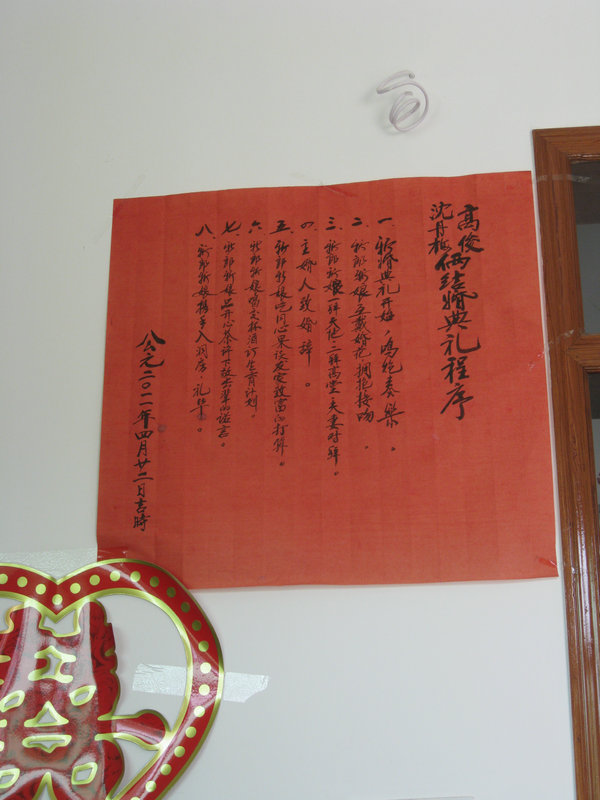 高俊
沈丹梅
俩结婚典礼程序
一、新婚典礼开始，鸣炮奏乐。
二、新郎新娘互戴婚花拥抱接吻。
三、新郎新娘一拜天地二拜高堂，夫妻对拜。
四、主婚人致婚辞。
五、新郎新娘吃同心果谈发家致富的打算。
六、新郎新娘喝交杯酒订生育计划。
七、新郎新娘品开心茶许下辈的诺言。
八、新郎新娘携手入洞房，礼毕。
公元二〇一一年四月廿二日吉時
囍